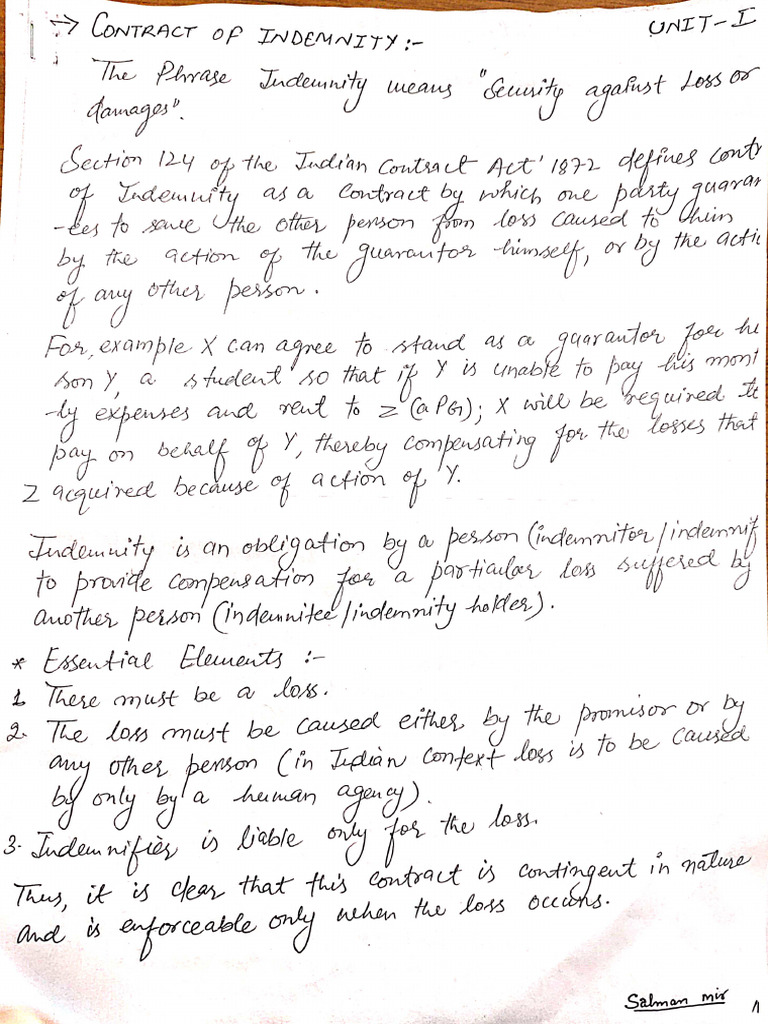 UNIT-I
→ CONTRACT OF INDEMNITY:-
The Phrase Indemnity means "Security against Loss or
damages".
Section 124 of the Indian Contract Act' 1872 defines contr
of Indemnity as a contract by which one party guaran
-ees to save the other person from loss caused to him
by the action of the guarantor himself, or by the acti
of any other person.
For, example X can agree to stand as a guarantor for hi
son Y, a student so that if Y is unable to pay his mont
-ly expenses and rent to Z (a PG); X will be required to
pay on behalf of Y, thereby compensating for the losses that
Z acquired because of action of Y.
Indemnity is an obligation by a person (indemnitor/indemnif
to provide compensation for a particular loss suffered by
another person (indemnitee/indemnity holder).
* Essential Elements :-
1. There must be a loss.
2. The loss must be caused either by the promisor or by
any other person (in Indian context loss is to be caused
by only by a human agency).
3. Indemnifier is liable only for the loss.
Thus, it is clear that this contract is contingent in nature
and is enforceable only when the loss occurs.
Salman mir
1